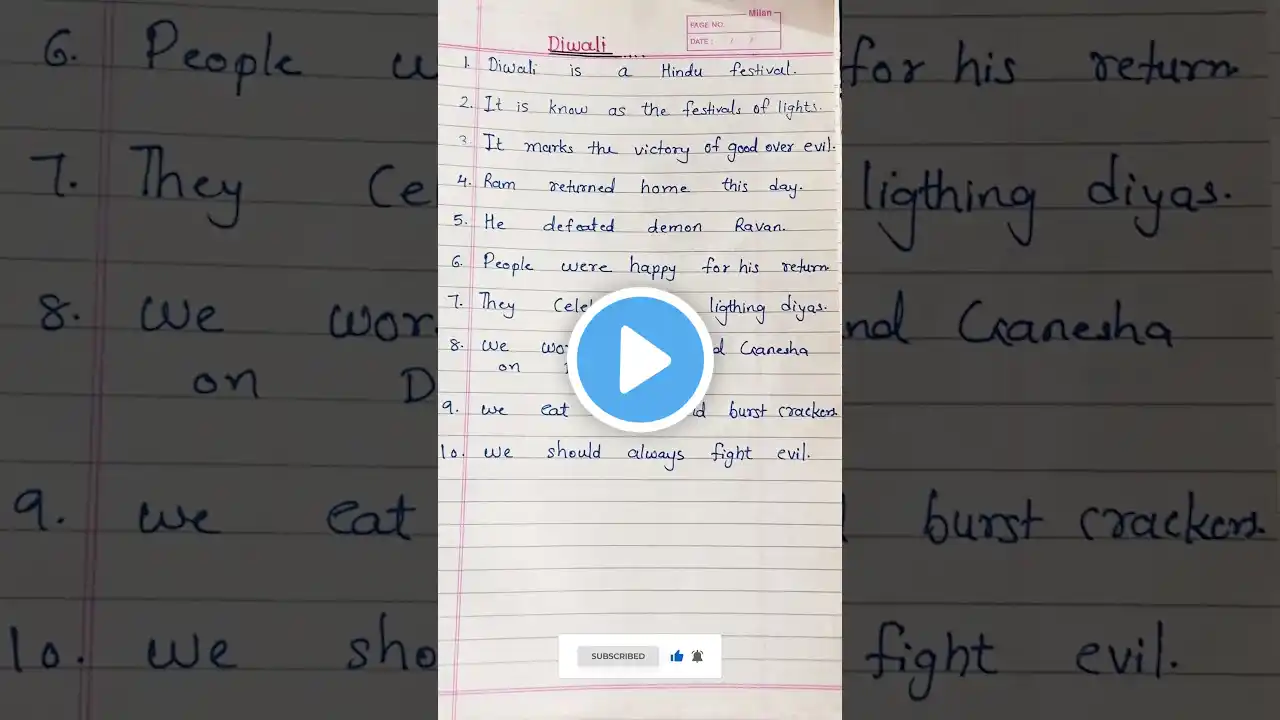 Milan
PAGE NO.
DATE: / /
Diwali
1. Diwali is a Hindu festival.
2. It is know as the festivals of lights.
3. It marks the victory of good over evil.
4. Ram returned home this day.
5. He defeated demon Ravan.
6. People were happy for his return
7. They ligthing diyas.
8. we Ganesha
on
9. we eat burst crackers
10. we should always fight evil.
SUBSCRIBED
6. People for his return
7. They ligthing diyas.
8. we Ganesha
on
9. we eat burst crackers.
10. we fight evil.